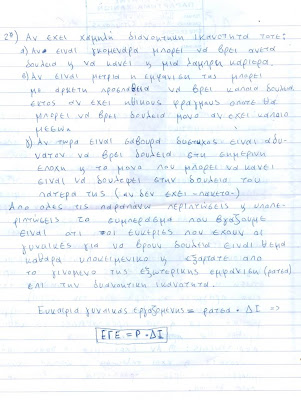 2ο) Αν έχει χαμηλή διανοητική ικανότητα τότε:
α) Αν είναι γκομενάρα μπορεί να βρει άνετα
δουλειά ή να κάνει μια λαμπρή καριέρα.
β) Αν είναι μέτρια η εμφάνιση της μπορεί
με αρκετή προσπάθεια να βρει κάποια δουλειά
εκτός αν έχει ηθικούς φραγμούς οπότε θα
μπορεί να βρει δουλειά μόνο αν έχει κάποιο
μέσων.
γ) Αν τώρα είναι σαβούρα δυστυχώς είναι αδύ-
νατον να βρει δουλειά στη σημερινή
εποχή η το μόνο που μπορεί να κάνει
είναι να δουλέψει στην δουλειά του
πατέρα της (αν δεν έχει
Από όλες τις παραπάνω περιπτώσεις η υποπε-
ριπτώσεις το συμπέρασμα που βγάζουμε
είναι ότι οι ευκαιρίες που έχουν οι
γυναίκες για να βρουν δουλειά είναι θέμα
καθαρά υποκειμενικό η εξαρτάτε από
το γινόμενο της εξωτερικής εμφάνισης (ράτσα)
επί την διανοητική ικανότητα.
Ευκαιρία γυναίκας εργαζόμενης = ράτσα · ΔΙ =>
ΕΓΕ = Ρ · ΔΙ